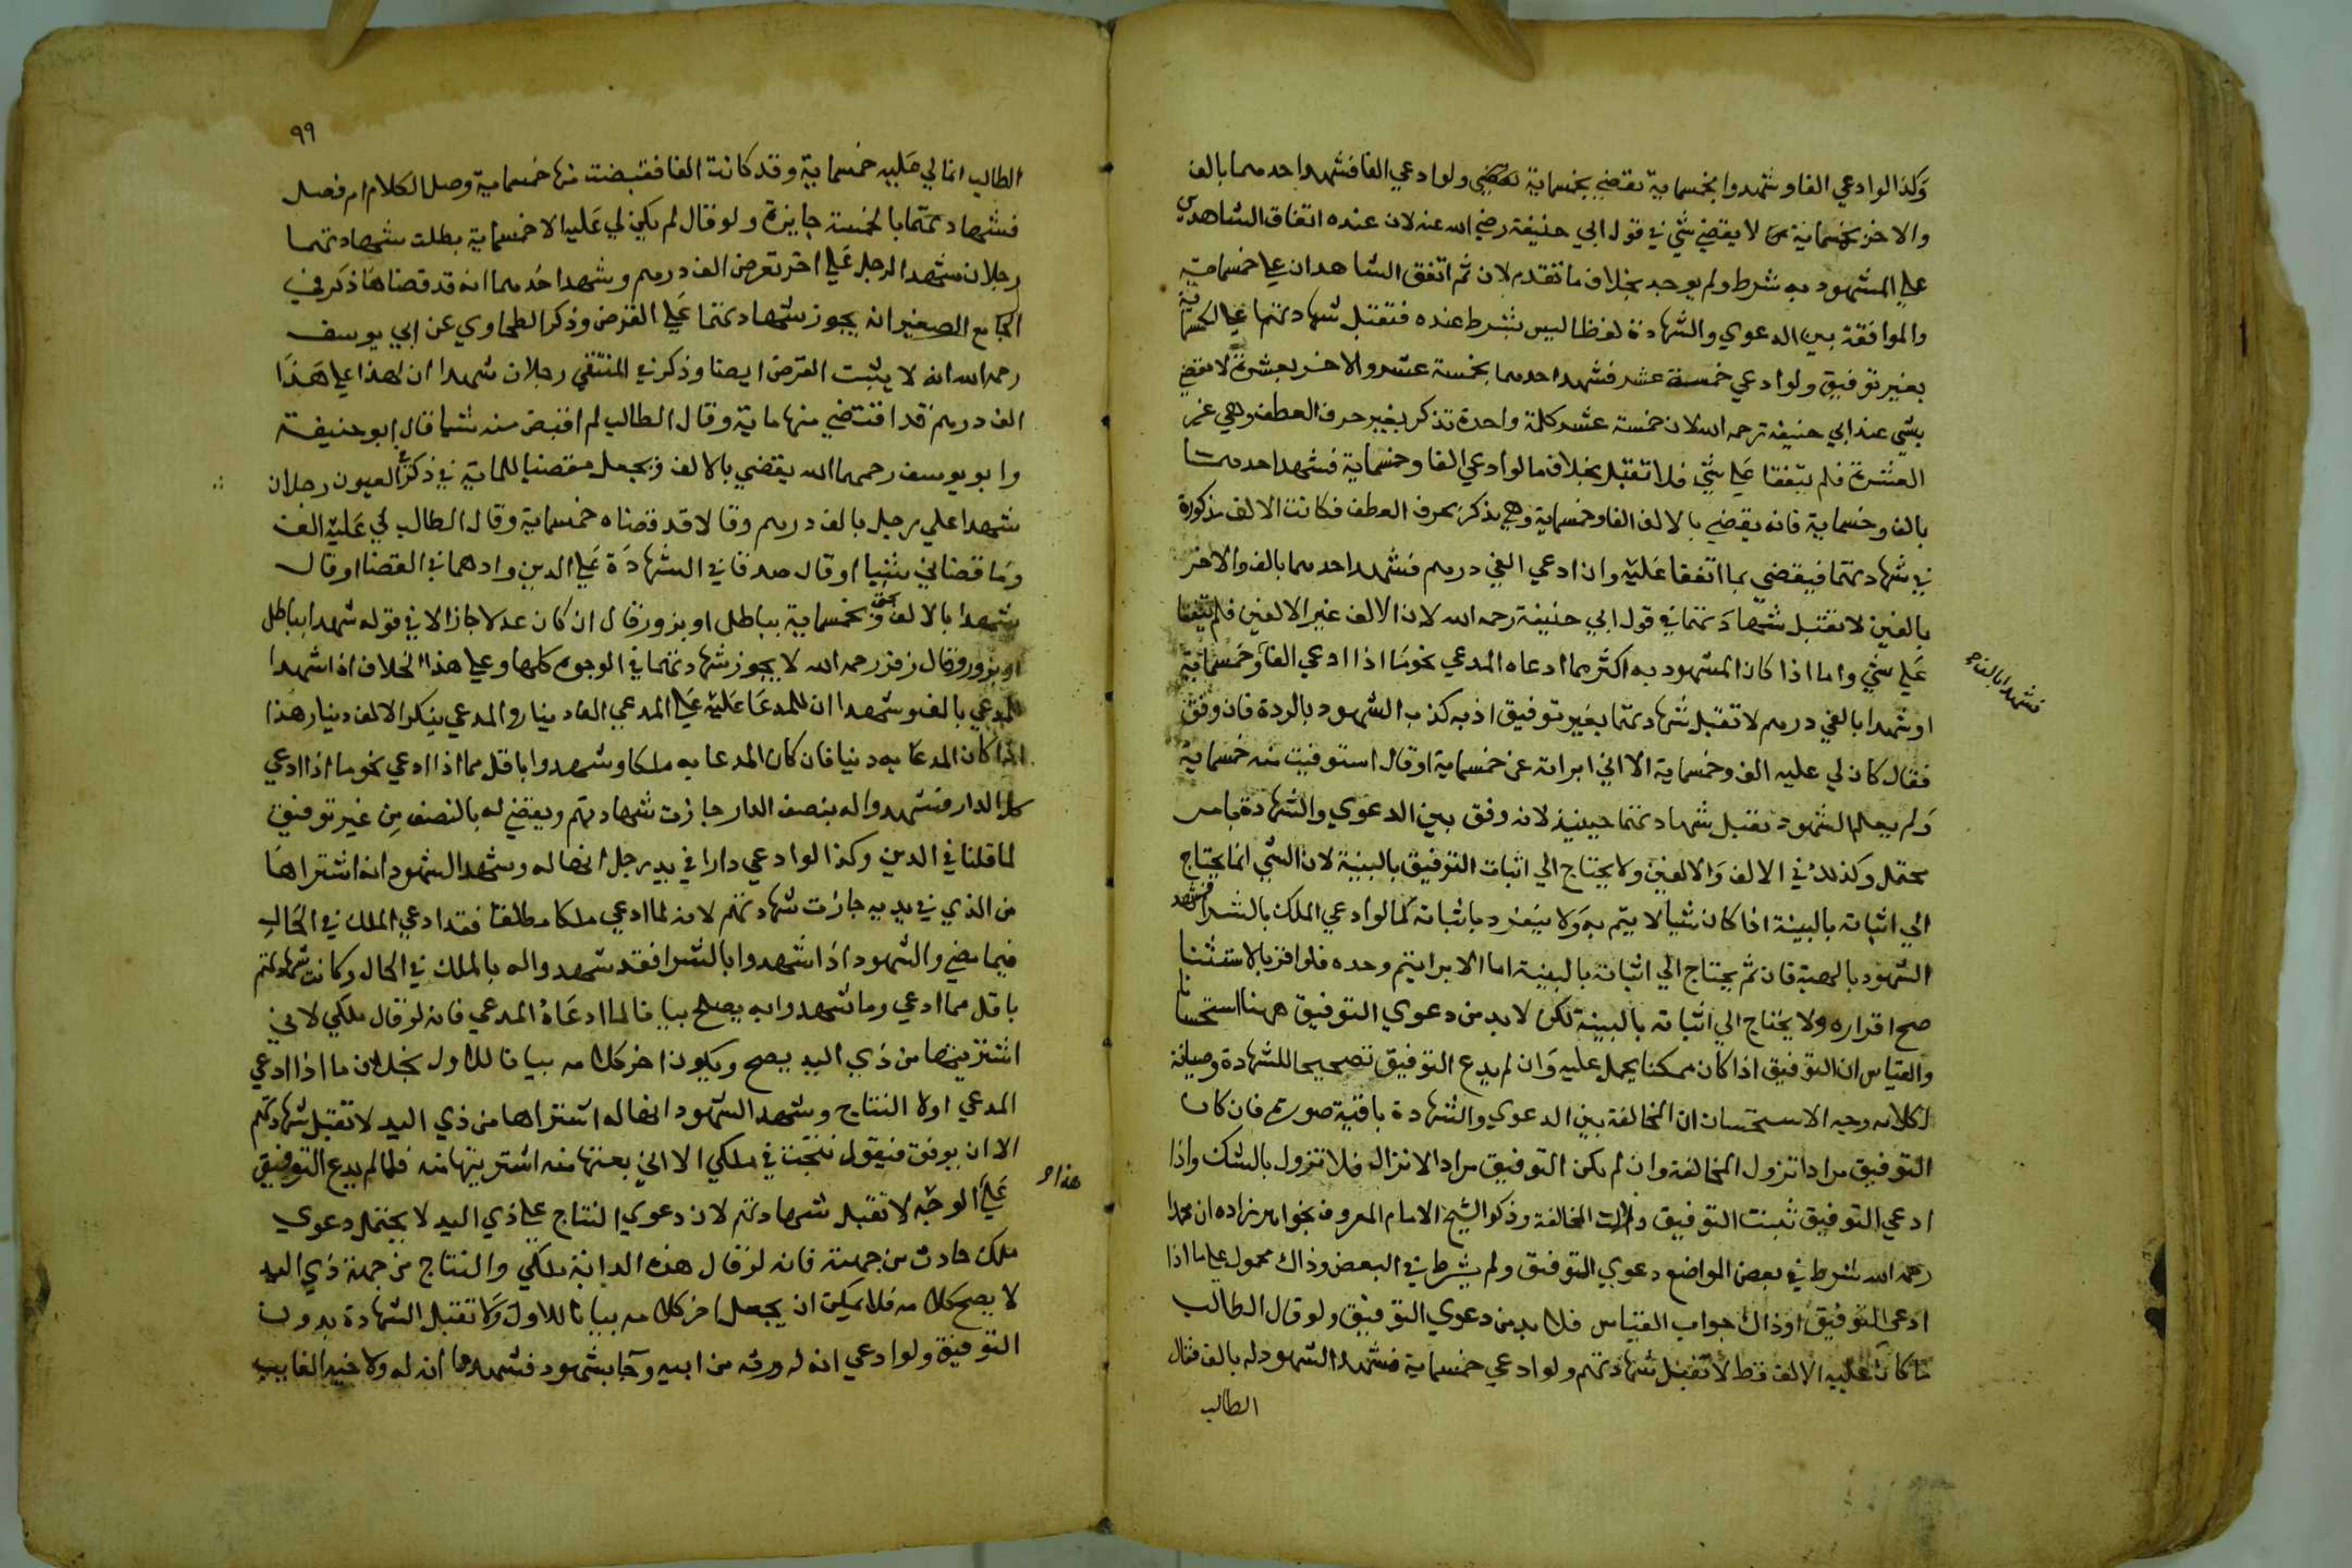 وكذا لو ادعي الفا وشهدوا بخمسماية يقضي بخمسماية ولو ادعي الفا فشهد احدهما بالف
والاخر بخمسماية لا يقضي بشي في قول ابي حنيفة رضي الله عنه لان عنده اتفاق الشاهدين
علي المشهود به شرط ولم يوجد بخلاف ما تقدم لان ثم اتفق الشاهدان علي خمسماية
والموافقة بين الدعوي والشهادة لفظا ليس بشرط عنده فتقبل شهادتهما علي الخمسماية
بغير توفيق ولو ادعي خمسة عشر فشهد احدهما بخمسة عشر والاخر بعشرة لا يقضي
بشي عند ابي حنيفة رحمه الله لان خمسة عشر كلمة واحدة تذكر بغير حرف العطف وهي غير
العشرة فلم يتفقا علي شي فلا تقبل بخلاف ما لو ادعي الفا وخمسماية فشهد احدهما
بالف وخمسماية فانه يقضي بالالف الفا وخمسماية وهي يذكر بحرف العطف فكانت الالف مذكورة
في شهادتهما فيقضي بما اتفقا عليه وان ادعي الفي درهم فشهد احدهما بالف والاخر
بالفين لا تقبل شهادتهما في قول ابي حنيفة رحمه الله لان الالف غير الالفين فلم يتفقا
علي شي واما اذا كان المشهود به اكثر مما ادعاه المدعي نحو ما اذا ادعي الفا وخمسماية
فشهدا بالف
او شهدا بالفي درهم لا تقبل شهادتهما بغير توفيق اذ به كذب الشهود بالردة فان وفق
فقال كان لي عليه الف وخمسماية الا اني ابراته عن خمسماية او قال استوفيت منه خمسماية
ولم يعلم الشهود تقبل شهادتهما حينيذ لانه وفق بين الدعوي والشهادة بامر
محتمل وكذلك في الالف والالفين ولا يحتاج الي اثبات التوفيق بالبينة لان الشي انما يحتاج
الي اثباته بالبينة اذا كان شيا لا يتم به ولا ينفرد باثباته كما لو ادعي الملك بالشرا فشهد
الشهود بالهبة فان ثم يحتاج الي اثباته بالبينة اما الابرا يتم وحده فلو اقر بالاستثنا
صح اقراره ولا يحتاج الي اثباته بالبينة لكن لا بد من دعوي التوفيق ههنا استحسانا
والقياس ان التوفيق اذا كان ممكنا يحمل عليه وان لم يدع التوفيق تصحيحا للشهادة وصيانة
لكلامه وجه الاستحسان ان المخالفة بين الدعوي والشهادة باقية صورة فان كان
التوفيق مرادا تزول المخالفة وان لم يكن التوفيق مرادا لا تزال فلا تزول بالشك واذا
ادعي التوفيق ثبت التوفيق وزالت المخالفة وذكر الشيخ الامام المعروف بخواهر زاده ان محمدا
رحمه الله شرط في بعض المواضع دعوي التوفيق ولم يشرط في البعض وذاك محمول علي ما اذا
ادعي التوفيق او ذاك جواب القياس فلا بد من دعوي التوفيق ولو قال الطالب
ما كان عليه الا الف فقط لا تقبل شهادتهم ولو ادعي خمسماية فشهد الشهود له بالف فقال
الطالب
٩٩
الطالب انما لي عليه خمسماية وقد كانت الفا فقبضت منها خمسماية وصل الكلام ام فصل
فشهادتهما بالخمسة جايزة ولو قال لم يكن لي عليه الا خمسماية بطلت شهادتهما
رجلان شهدا لرجل علي اخر بقرض الف درهم وشهد احدهما انه قد قضاها ذكر في
الجامع الصغير انه يجوز شهادتهما علي القرض وذكر الطحاوي عن ابي يوسف
رحمه الله انه لا يثبت القرض ايضا وذكر في المنتقي رجلان شهدا ان لهذا علي هذا
الف درهم قد اقتضي منها ماية وقال الطالب لم اقبض منه شيا قال ابو حنيفة
وابو يوسف رحمهما الله يقضي بالالف ويجعل مقضيا للماية في ذكر في العيون رجلان
شهدا علي رجل بالف درهم وقالا قد قضاه خمسماية وقال الطالب لي عليه الف
وما قضاني شيا او قال صدقا في الشهادة علي الدين واوهما في القضا او قال
شهدا بالالف بحق وبخمسماية بباطل او بزور قال ان كان عدلا جاز الا في قوله شهدا بباطل
او بزور وقال زفر رحمه الله لا يجوز شهادتهما في الوجوه كلها وعلي هذا الخلاف اذا شهدا
للمدعي بالف وشهدا ان للمدعا عليه علي المدعي الف دينار والمدعي ينكر الالف دينار هذا
اذا كان المدعا به دينا فان كان المدعا به ملكا وشهدوا باقل مما اذا ادعي نحو ما اذا ادعي
كل الدار فشهدوا له بنصف الدار جازت شهادتهم ويقضي له بالنصف من غير توفيق
لما قلنا في الدين وكذا لو ادعي دارا في يد رجل انها له وشهد الشهود انه اشتراها
من الذي في يديه جازت شهادتهم لانه لما ادعي ملكا مطلقا فقد ادعي الملك في الحال
فيما مضي والشهود اذا شهدوا بالشرا فقد شهدوا له بالملك في الحال وكانت شهادتهم
باقل مما ادعي وما شهدوا به يصلح بيانا لما ادعاه المدعي فانه لو قال ملكي لاني
اشتريتها من ذي اليد يصح ويكون اخر كلامه بيانا للاول بخلاف ما اذا ادعي
المدعي اولا النتاج وشهد الشهود انها له اشتراها من ذي اليد لا تقبل شهادتهم
الا ان يوفق فيقول نتجت في ملكي الا اني بعتها منه اشتريتها منه فلما لم يدع التوفيق
هذا
علي الوجه لا تقبل شهادتهم لان دعوي النتاج علي ذي اليد لا يحتمل دعوي
ملك حادث من جهته فانه لو قال هذه الدابة ملكي والنتاج من جهة ذي اليد
لا يصح كلامه فلا يمكن ان يجعل اخر كلامه بيانا للاول ولا تقبل الشهادة بدون
التوفيق ولو ادعي انه له ورثه من ابيه وجا بشهود فشهدوا انه له ولاخيه الغايب